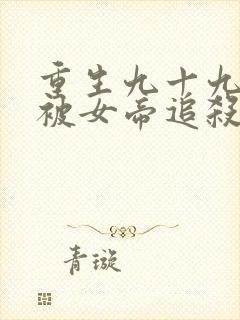 重生九十九
被女帝追殺
青璇